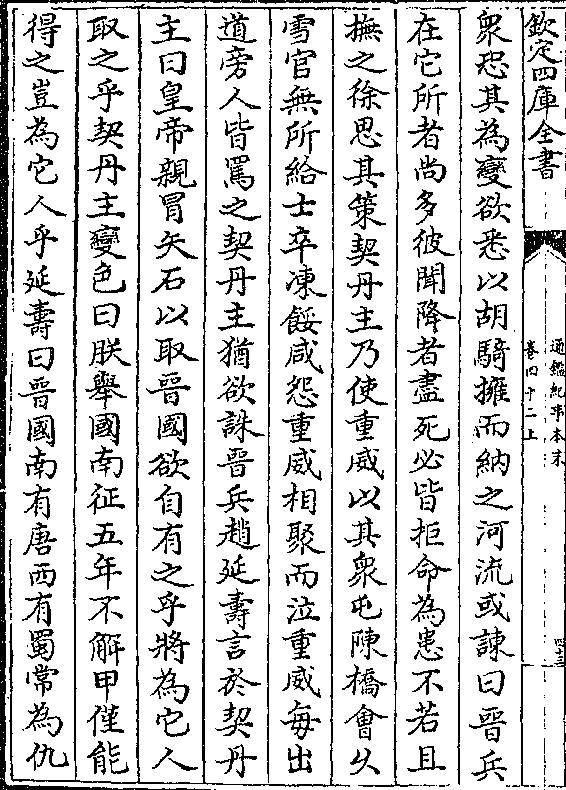 欽定四庫全書
通鑑紀事本末
卷四十二上
四十三
衆恐其為變欲悉以胡騎擁而納之河流或諫曰晉兵
在它所者尚多彼聞降者盡死必皆拒命為患不若且
撫之徐思其策契丹主乃使重威以其衆屯陳橋會久
雪官無所給士卒凍餒咸怨重威相聚而泣重威每出
道旁人皆罵之契丹主猶欲誅晉兵趙延壽言於契丹
主曰皇帝親冒矢石以取晉國欲自有之乎將為它人
取之乎契丹主變色曰朕舉國南征五年不解甲僅能
得之豈為它人乎延壽曰晉國南有唐西有蜀常為仇